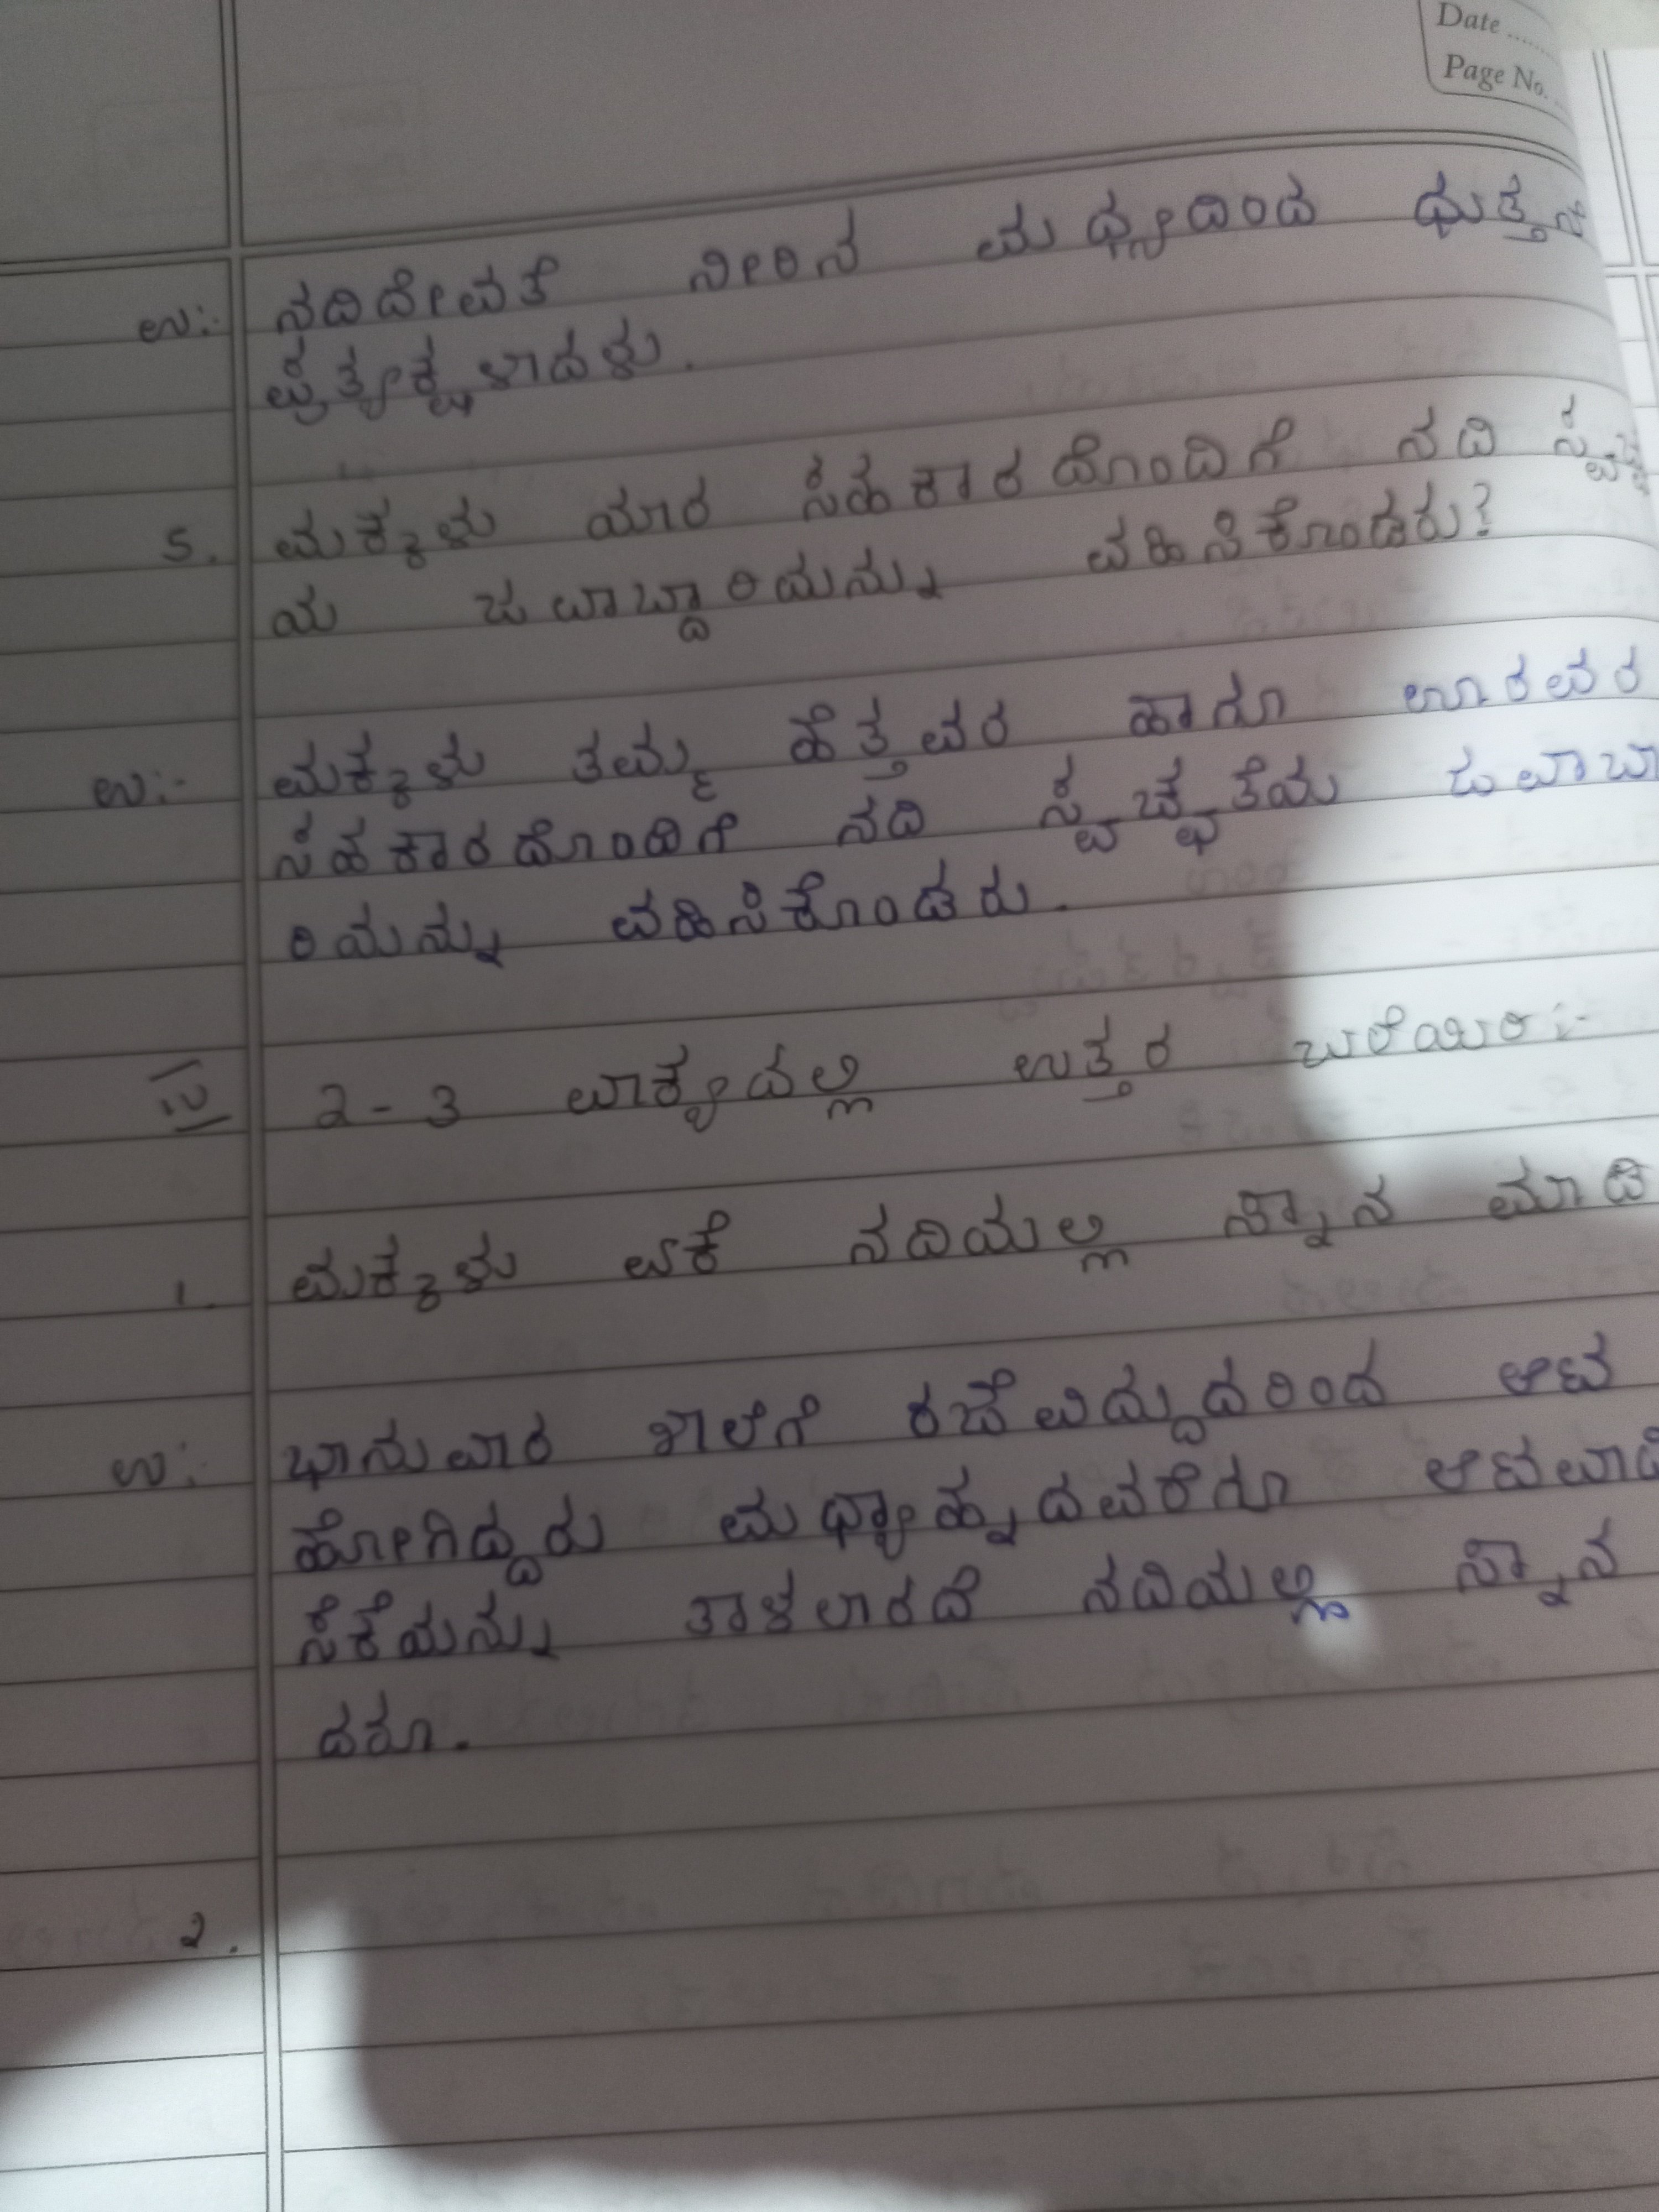 Date ......
Page No. ..
ಉ:- ನದಿದೇವತೆ ನೀರಿನ ಮಧ್ಯದಿಂದ
ಪ್ರತ್ಯಕ್ಷಳಾದಳು.
5. ಮಕ್ಕಳು ಯಾರ ಸಹಕಾರದೊಂದಿಗೆ ನದಿ
ಯ ಜವಾಬ್ದಾರಿಯನ್ನು ವಹಿಸಿಕೊಂಡರು?
ಉ:- ಮಕ್ಕಳು ತಮ್ಮ ಹೆತ್ತವರ ಹಾಗೂ ಊರವರ
ಸಹಕಾರದೊಂದಿಗೆ ನದಿ ಸ್ವಚ್ಛತೆಯ ಜವಾಬಾ
ರಿಯನ್ನು ವಹಿಸಿಕೊಂಡರು.
IV 2-3 ವಾಕ್ಯದಲ್ಲಿ ಉತ್ತರ ಬರೆಯಿರಿ:-
1. ಮಕ್ಕಳು ಏಕೆ ನದಿಯಲ್ಲಿ ಸ್ನಾನ ಮಾಡಿ
ಉ: ಭಾನುವಾರ ಶಾಲೆಗೆ ರಜೆವಿದ್ದುದರಿಂದ ಆಟ
ಹೋಗಿದ್ದರು ಮಧ್ಯಾಹ್ನದವರೆಗೂ ಆಟವಾಡಿ
ಸೆಕೆಯನ್ನು ತಾಳಲಾರದೆ ನದಿಯಲ್ಲಿ ಸ್ನಾನ
ದರೂ.
2.